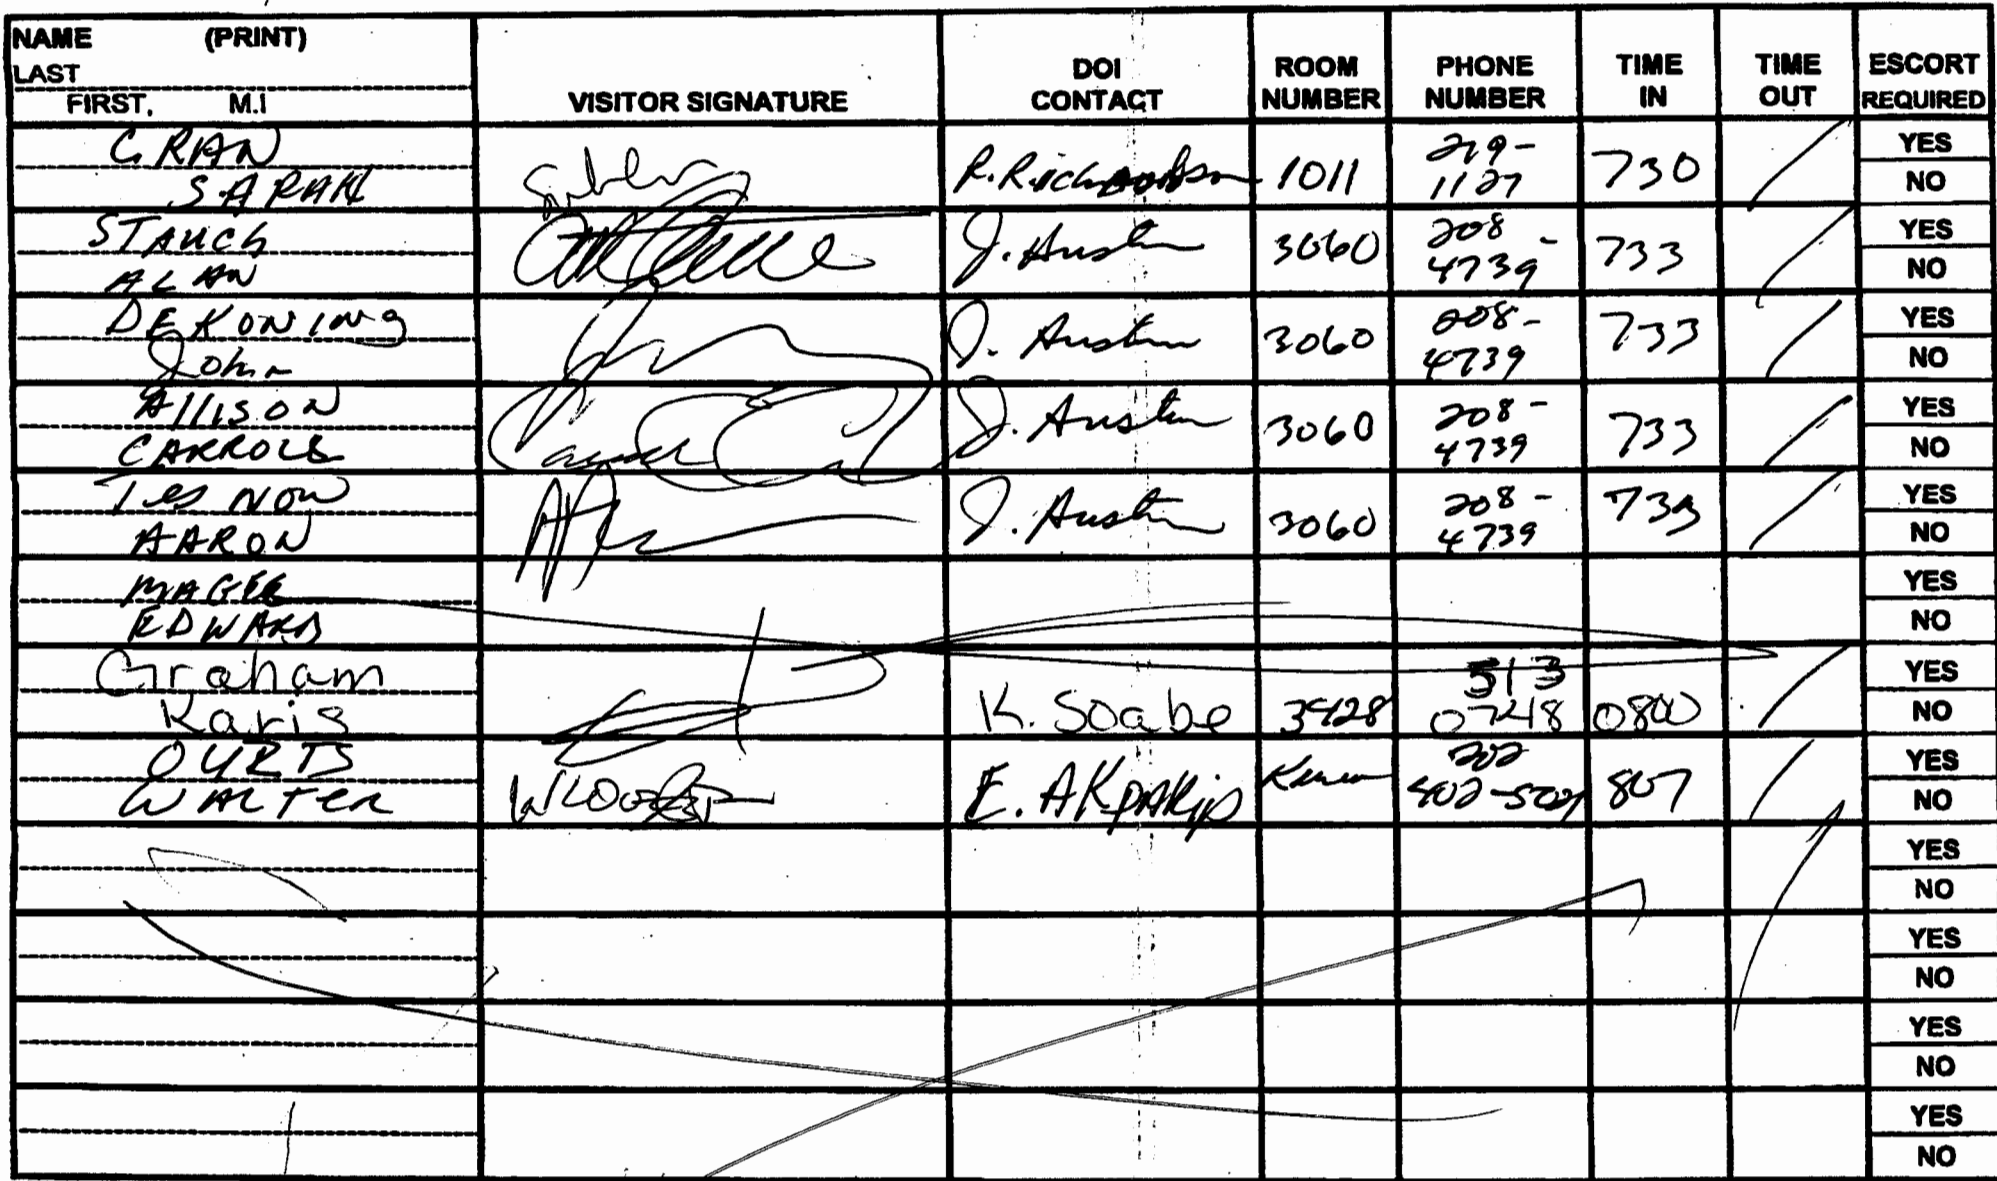 NAME (PRINT)
LAST
FIRST, M.I
VISITOR SIGNATURE
DOI CONTACT
ROOM NUMBER
PHONE NUMBER
TIME IN
TIME OUT
ESCORT REQUIRED
GRAN
SARAH
R. Richardson 1011 219-1127 730
YES
NO
STAUCH
ALAN
J. Austin 3060 208-4739 733
YES
NO
DEKONING
John
J. Austin 3060 208-4739 733
YES
NO
AllisON
CARROLL
J. Austin 3060 208-4739 733
YES
NO
AARON
J. Austin 3060 208-4739 733
YES
NO
MAGEE
EDWARD
YES
NO
Graham
Karis
K. Soabe 3428 513 0748 0800
YES
NO
WALTER
E. 202 807
YES
NO
YES
NO
YES
NO
YES
NO
YES
NO